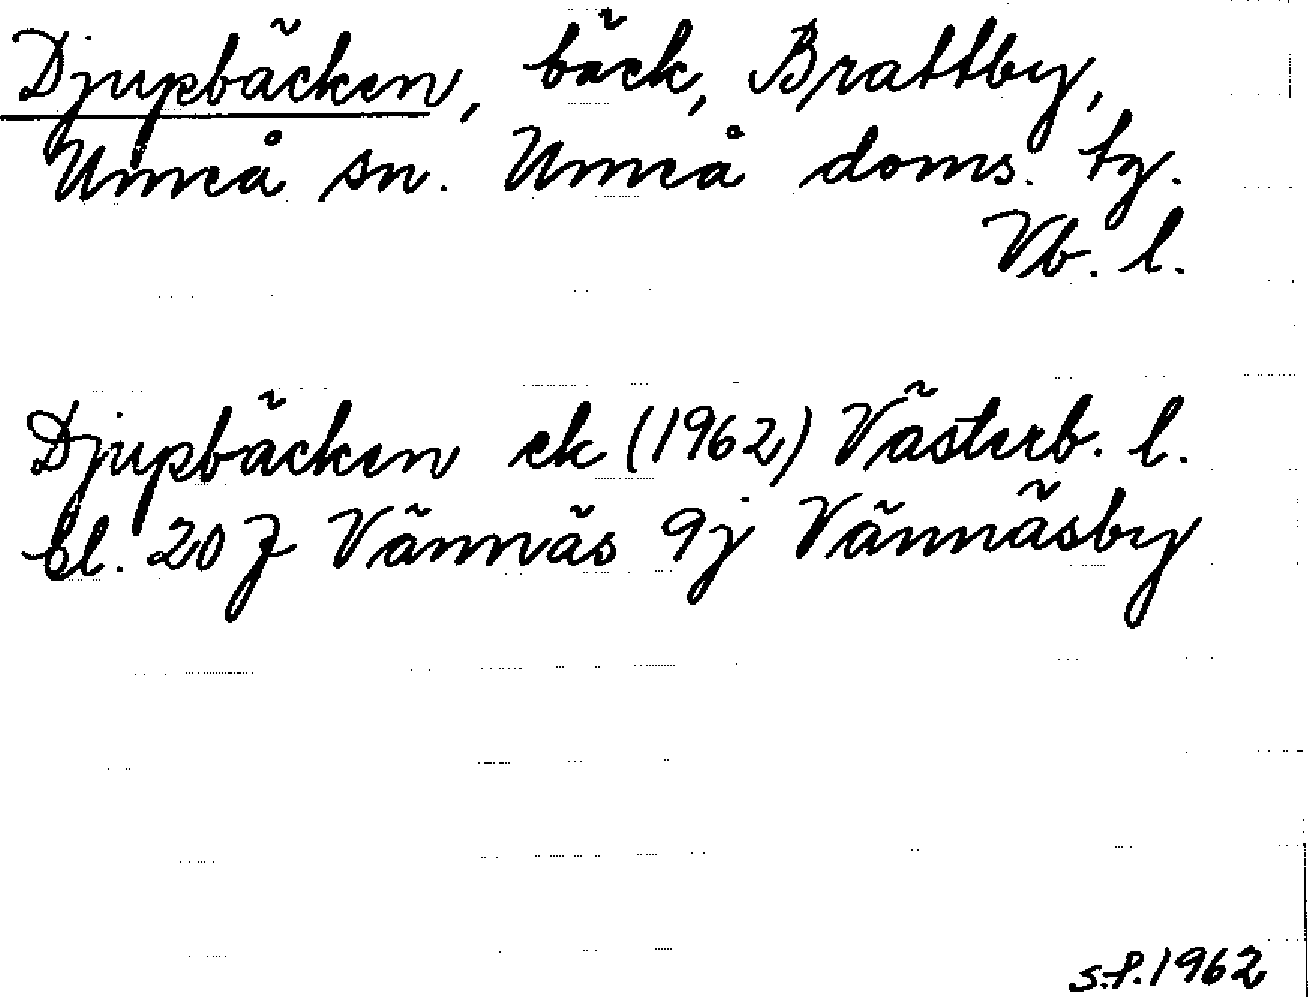 Djupbäcken, bäck, Brattby,
Umeå sn. Umeå doms. tg.
Vb. l.
Djupbäcken ek (1962) Västerb. l.
bl. 20 J Vännäs 9j Vännäsby
s.f. 1962